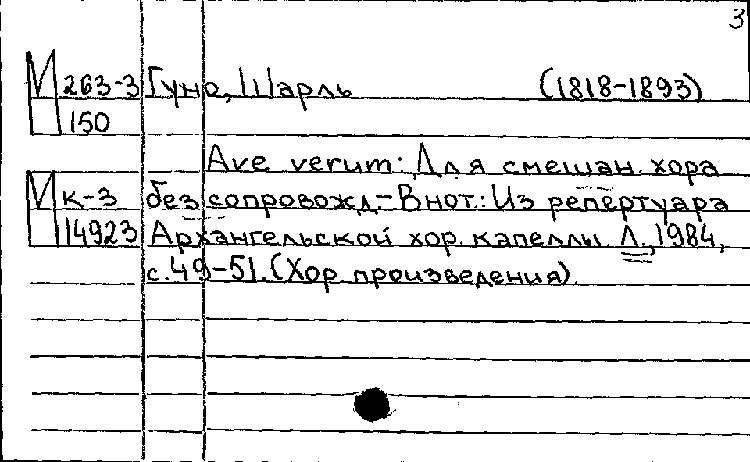 3
М 263-3 Гуно, Шарль (1818-1893)
150
Ave verum: Для смешан. хора
М к-3 без сопровожд.- В нот.: Из репертуара
14923 Архангельской хор. капеллы. Л., 1984,
с.49-51. (Хор. произведения).